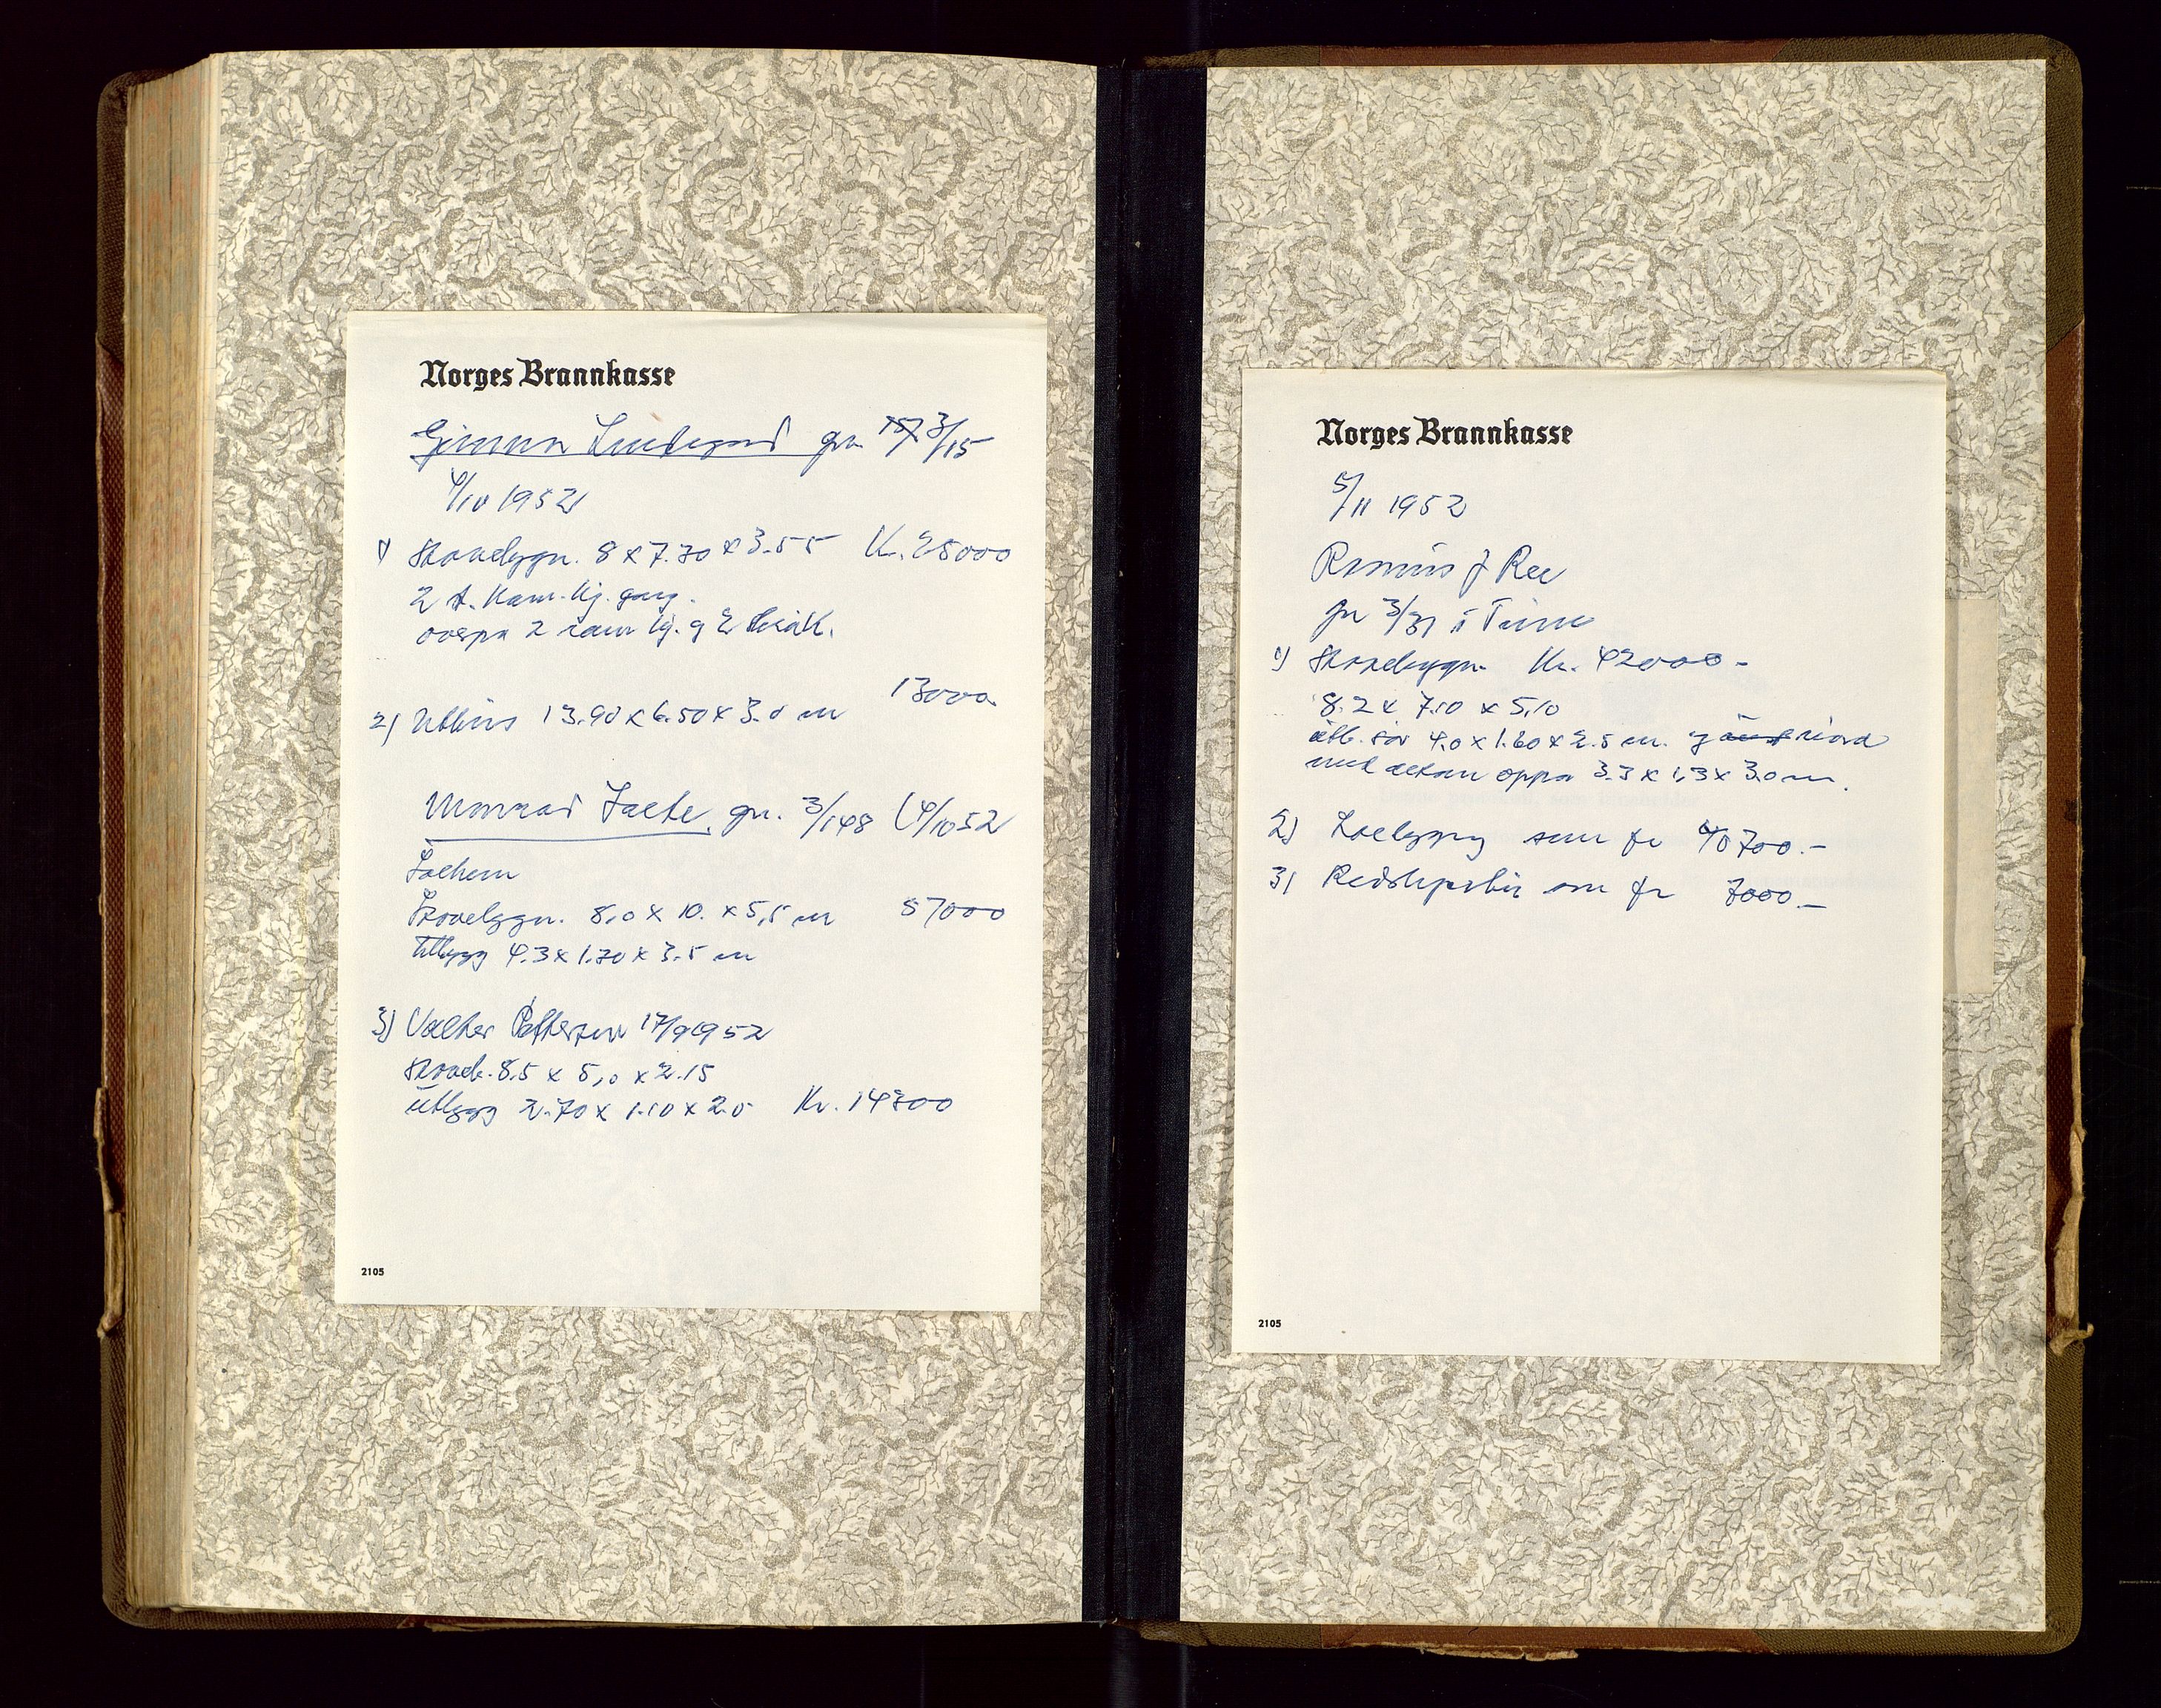 Norges Brannkasse
Gunnar Lindegård gn. 3/15
4/10 1952
1) Stovebygn. 8 x 7.70 x 3.55 Kr. 25000
2 st. kam. kj. gang.
overpå 2 kam kj. g 2
2) Uthus 13.90 x 6.50 x 3.0 m 13000
Monrad gn. 3/148 (4/10 52
Stovebygn. 8,0 x 10. x 5,5 m 57000
Utbygg 4.3 x 1.70 x 3.5 m
3) Valter Pettersen 17/9 1952
Stoveb. 8.5 x 5,0 x 2.15
Utbygg 2.70 x 1.10 x 2.0 Kr. 14300
2105
Norges Brannkasse
5/11 1952
Rasmus J Ree
gn 3/31 i Time
1) Stovebygn. Kr. 42000-
8.2 x 7.10 x 5,10
utb. sør 4.0 x 1.60 x 2.5 m. g nord
med altan oppå 3.3 x 1,3 x 3.0 m.
2) Løebygg som før 40700.-
3) Redskapshus som før 7000.-
2105